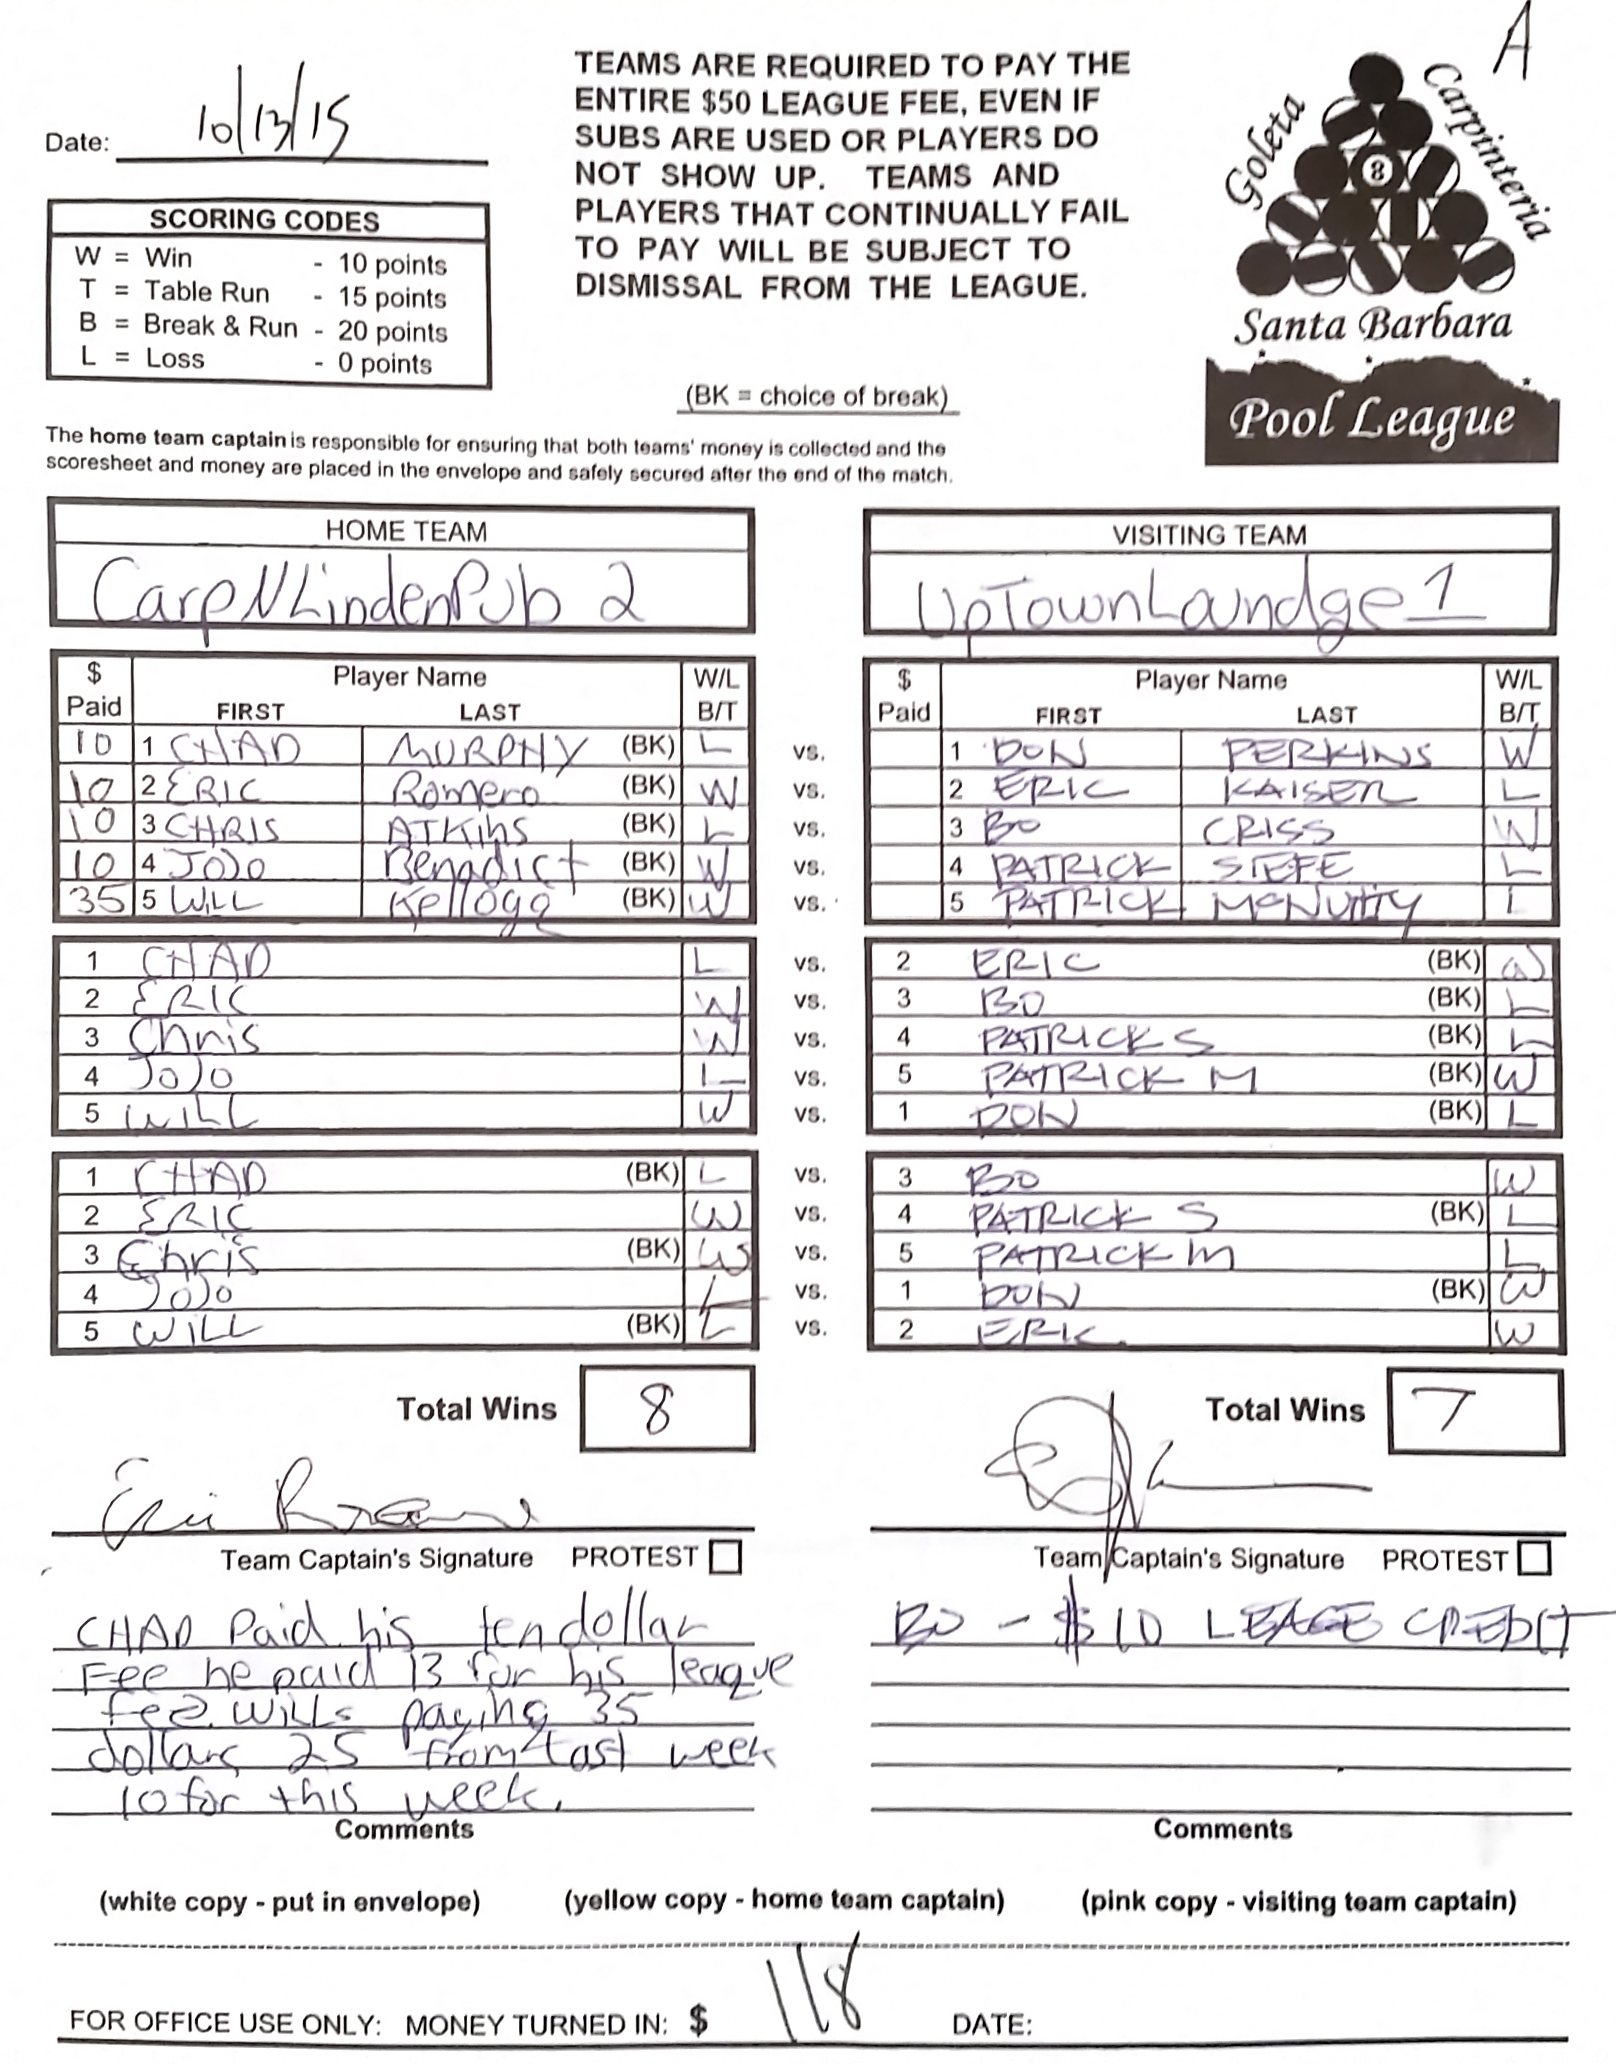 A
Date: 10/13/15
TEAMS ARE REQUIRED TO PAY THE
ENTIRE $50 LEAGUE FEE, EVEN IF
SUBS ARE USED OR PLAYERS DO
NOT SHOW UP. TEAMS AND
PLAYERS THAT CONTINUALLY FAIL
TO PAY WILL BE SUBJECT TO
DISMISSAL FROM THE LEAGUE.
Goleta
Carpinteria
8
Santa Barbara
Pool League
SCORING CODES
W = Win - 10 points
T = Table Run - 15 points
B = Break & Run - 20 points
L = Loss - 0 points
(BK = choice of break)
The home team captain is responsible for ensuring that both teams' money is collected and the
scoresheet and money are placed in the envelope and safely secured after the end of the match.
HOME TEAM VISITING TEAM
CarpNLindenPub 2 UpTownLoundge 1
$ Paid Player Name FIRST LAST W/L B/T $ Paid Player Name FIRST LAST W/L B/T
10 1 CHAD MURPHY (BK) L vs. 1 DON PERKINS W
10 2 ERIC Romero (BK) W vs. 2 ERIC KAISER L
10 3 CHRIS ATKins (BK) L vs. 3 BO CRISS W
10 4 JoJo Benadict (BK) W vs. 4 PATRICK STEFE L
35 5 WILL Kellogg (BK) W vs. 5 PATRICK McNUTTY L
1 CHAD L vs. 2 ERIC (BK) W
2 ERIC W vs. 3 BO (BK) L
3 Chris W vs. 4 PATRICK S (BK) L
4 JoJo L vs. 5 PATRICK M (BK) W
5 WILL W vs. 1 DON (BK) L
1 CHAD (BK) L vs. 3 BO W
2 ERIC W vs. 4 PATRICK S (BK) L
3 Chris (BK) W vs. 5 PATRICK M L
4 JoJo L vs. 1 DON (BK) W
5 WILL (BK) L vs. 2 ERIC W
Total Wins 8 Total Wins 7
Team Captain's Signature PROTEST Team Captain's Signature PROTEST
CHAD Paid his ten dollar
Fee he paid 13 for his league
fee. Wills paying 35
dollars 25 from last week
10 for this week.
Comments
BO - $10 LEAGE CREDIT
Comments
(white copy - put in envelope) (yellow copy - home team captain) (pink copy - visiting team captain)
FOR OFFICE USE ONLY: MONEY TURNED IN: $ 118 DATE: